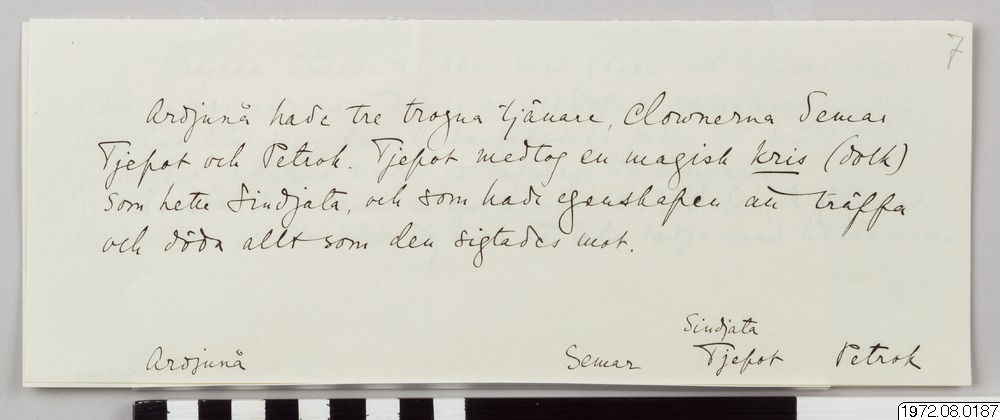 7
Ardjunå hade tre trogna tjänare, Clownerna Semar
Tjepot och Petrok. Tjepot medtog en magisk kris (dolk)
som hette Sindjata, och som hade egenskapen att träffa
och döda allt som den sigtades mot.
Sindjata
Ardjunå Semar Tjepot Petrok
1972.08.0187